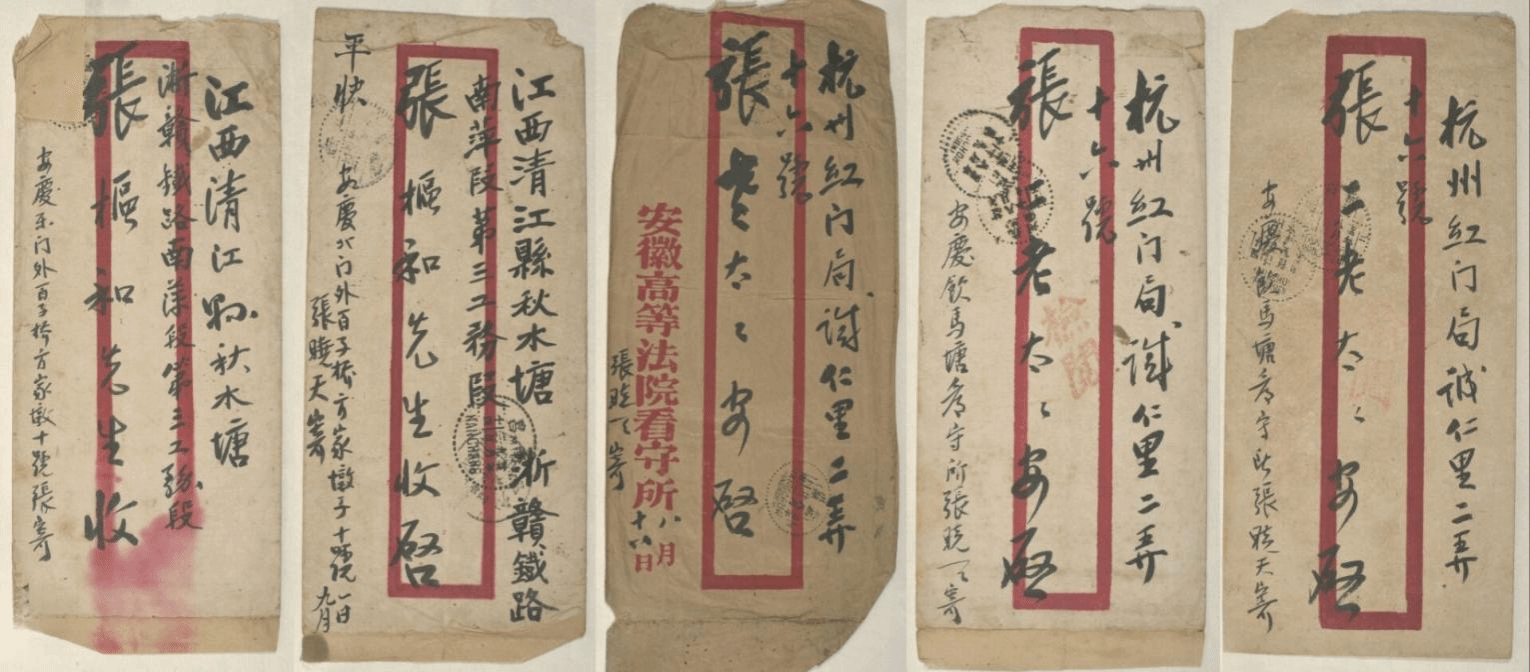 江西清江縣秋水塘
浙贛鐵路南萍段第三工務段
張樞和先生收
安慶东门外百子桥方家墩十號張寄
江西清江縣秋水塘 浙贛鐵路
南萍段第三工務段
張樞和先生收啓
平快
安慶北门外百子橋方家墩子十號
張曉天寄
九月一日
杭州紅门局誠仁里二弄
十六號
張老太太安啓
安徽高等法院看守所
八月十六日
張曉天寄
杭州紅门局誠仁里二弄
十六號
張三老太太安啓
安慶飲馬塘看守所張曉天寄
杭州紅门局誠仁里二弄
十六號
張三老太太安啓
安慶飲馬塘看守所張曉天寄